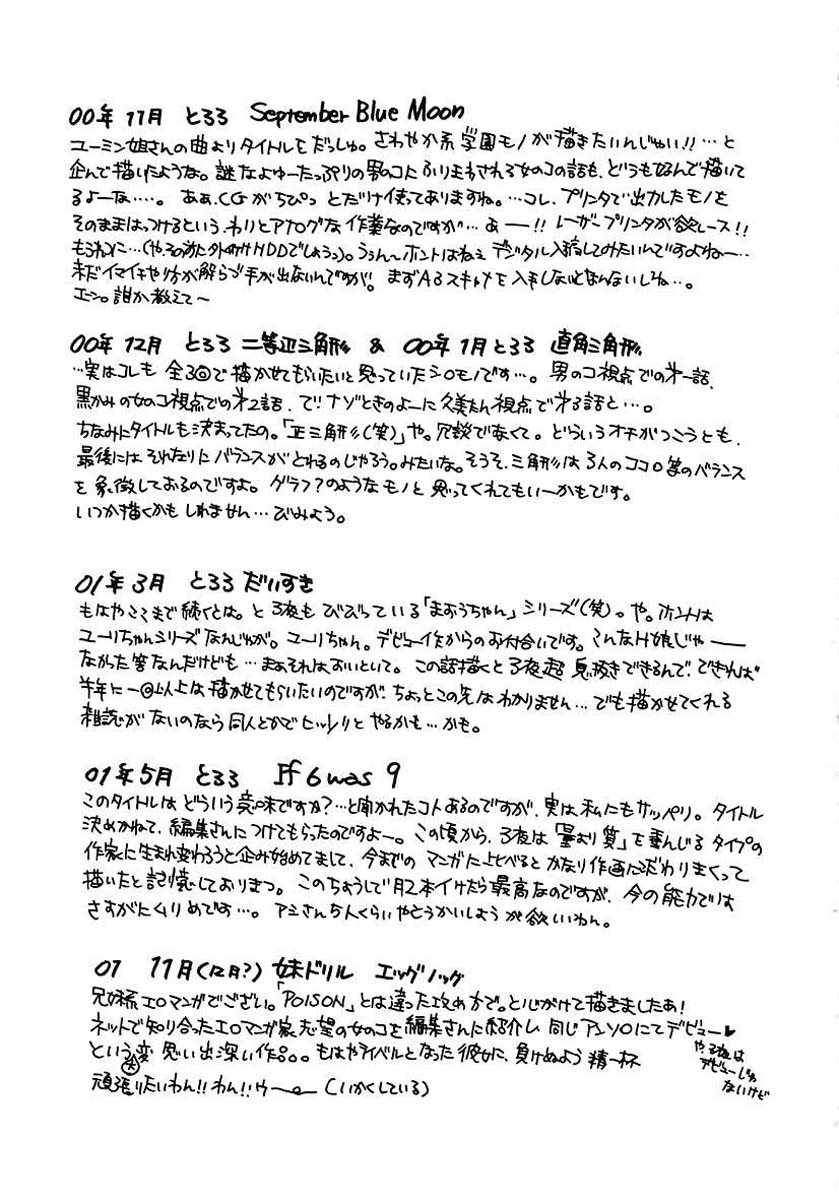 00年11月 とろろ September Blue Moon
ユーミン姐さんの曲よりタイトルをだっしゅ。さわやか系学園モノが描きたいんじゃい!!…と
企んで描いたような。謎なよゆーたっぷりの男のコにふりまわされる女のコの話も、どうもなんで描いて
るよーな…。あぁ、CGがちぴっとだけ使ってありますね。…コレ、プリンタで出力したモノを
そのままはっつけるという、わりとアナログな作業なのですが…あ——!!レーザープリンタが欲しース!!
(や、その前に外付けHDDでしょうっ)。うぅん〜ホントはねぇデジタル入稿してみたいんですよねー…
未だイマイチやり方が解らず手が出ないんですが。まずA3スキャナを入手しないとなんないしね…。
エーン。誰か教えて〜
00年12月 とろろ 二等辺三角形 & 00年1月とろろ 直角三角形
…実はコレも全3回で描かせてもらいたいと思っていたシロモノです…。男のコ視点での第一話、
黒かみの女のコ視点での第2話、で!!ナゾときのよーに久美たん視点で第3話と…。
ちなみにタイトルも決まってたの。「正三角形(笑)」や。冗談でなくて。どういうオチがつこうとも、
最後にはそれなりにバランスがとれるのじゃろう。みたいな。そうそ、三角形は3人のココロ等のバランス
を象徴しておるのですよ。グラフ?のようなモノと思ってくれてもいーかもです。
いつか描くかもしれません…びみょう。
01年3月 とろろ だいすき
もはやここまで続くとは。と3夜もびびっている「まおうちゃん」シリーズ(笑)。や。ホントは
ユーリちゃんシリーズなんじゃが。ユーリちゃん。デビュー作からのお付合いです。こんなH娘じゃ——
なかった筈なんだけども…まあそれはおいといて。この話描くと3夜超息抜きできるんで、できれば
半年に一回以上は描かせてもらいたいのですが、ちょっとこの先はわかりません…でも描かせてくれる
雑誌がないのなら同人とかでヒッソリとやるかも…かも。
01年5月 とろろ If 6 was 9
このタイトルはどういう意味ですか?…と聞かれたコトあるのですが、実は私にもサッパリ。タイトル
決めかねて、編集さんにつけてもらったのですよー。この頃から、3夜は「量より質」を重んじるタイプの
作家に生まれ変わろうと企み始めてまして、今までのマンガに比べるとかなり作画にこだわりまくって
描いたと記憶しておりまっ。このちょうしで月2本イけたら最高なのですが、今の能力では
さすがにムリめです…。アシさん5人くらいやとうかいしょうが欲しいわん。
01 11月(12月?) 妹ドリル エッグノッグ
兄妹系エロマンガでございます。「POISON」とは違った攻め方で。と心がけて描きましたあ!
ネットで知り合ったエロマンガ家志望の女のコを編集さんに紹介し同じアンソロにてデビュー♥
や、3夜は
デビューじゃ
ないけど
という変思い出深い作品。もはやライバルとなった彼女に、負けぬよう精一杯
大
頑張りたいわん!!わん!!ウ〜 (いかくしている)